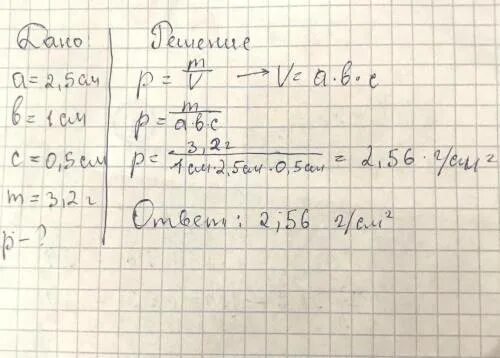 Дано:
a = 2,5 см
в = 1 см
c = 0,5 см
m = 3,2 г
p - ?
Решение
p = m/V → V = a · в · c
p = m/a·в·c
p = 3,2 г/1 см · 2,5 см · 0,5 см = 2,56 · г/см²
Ответ: 2,56 г/см²